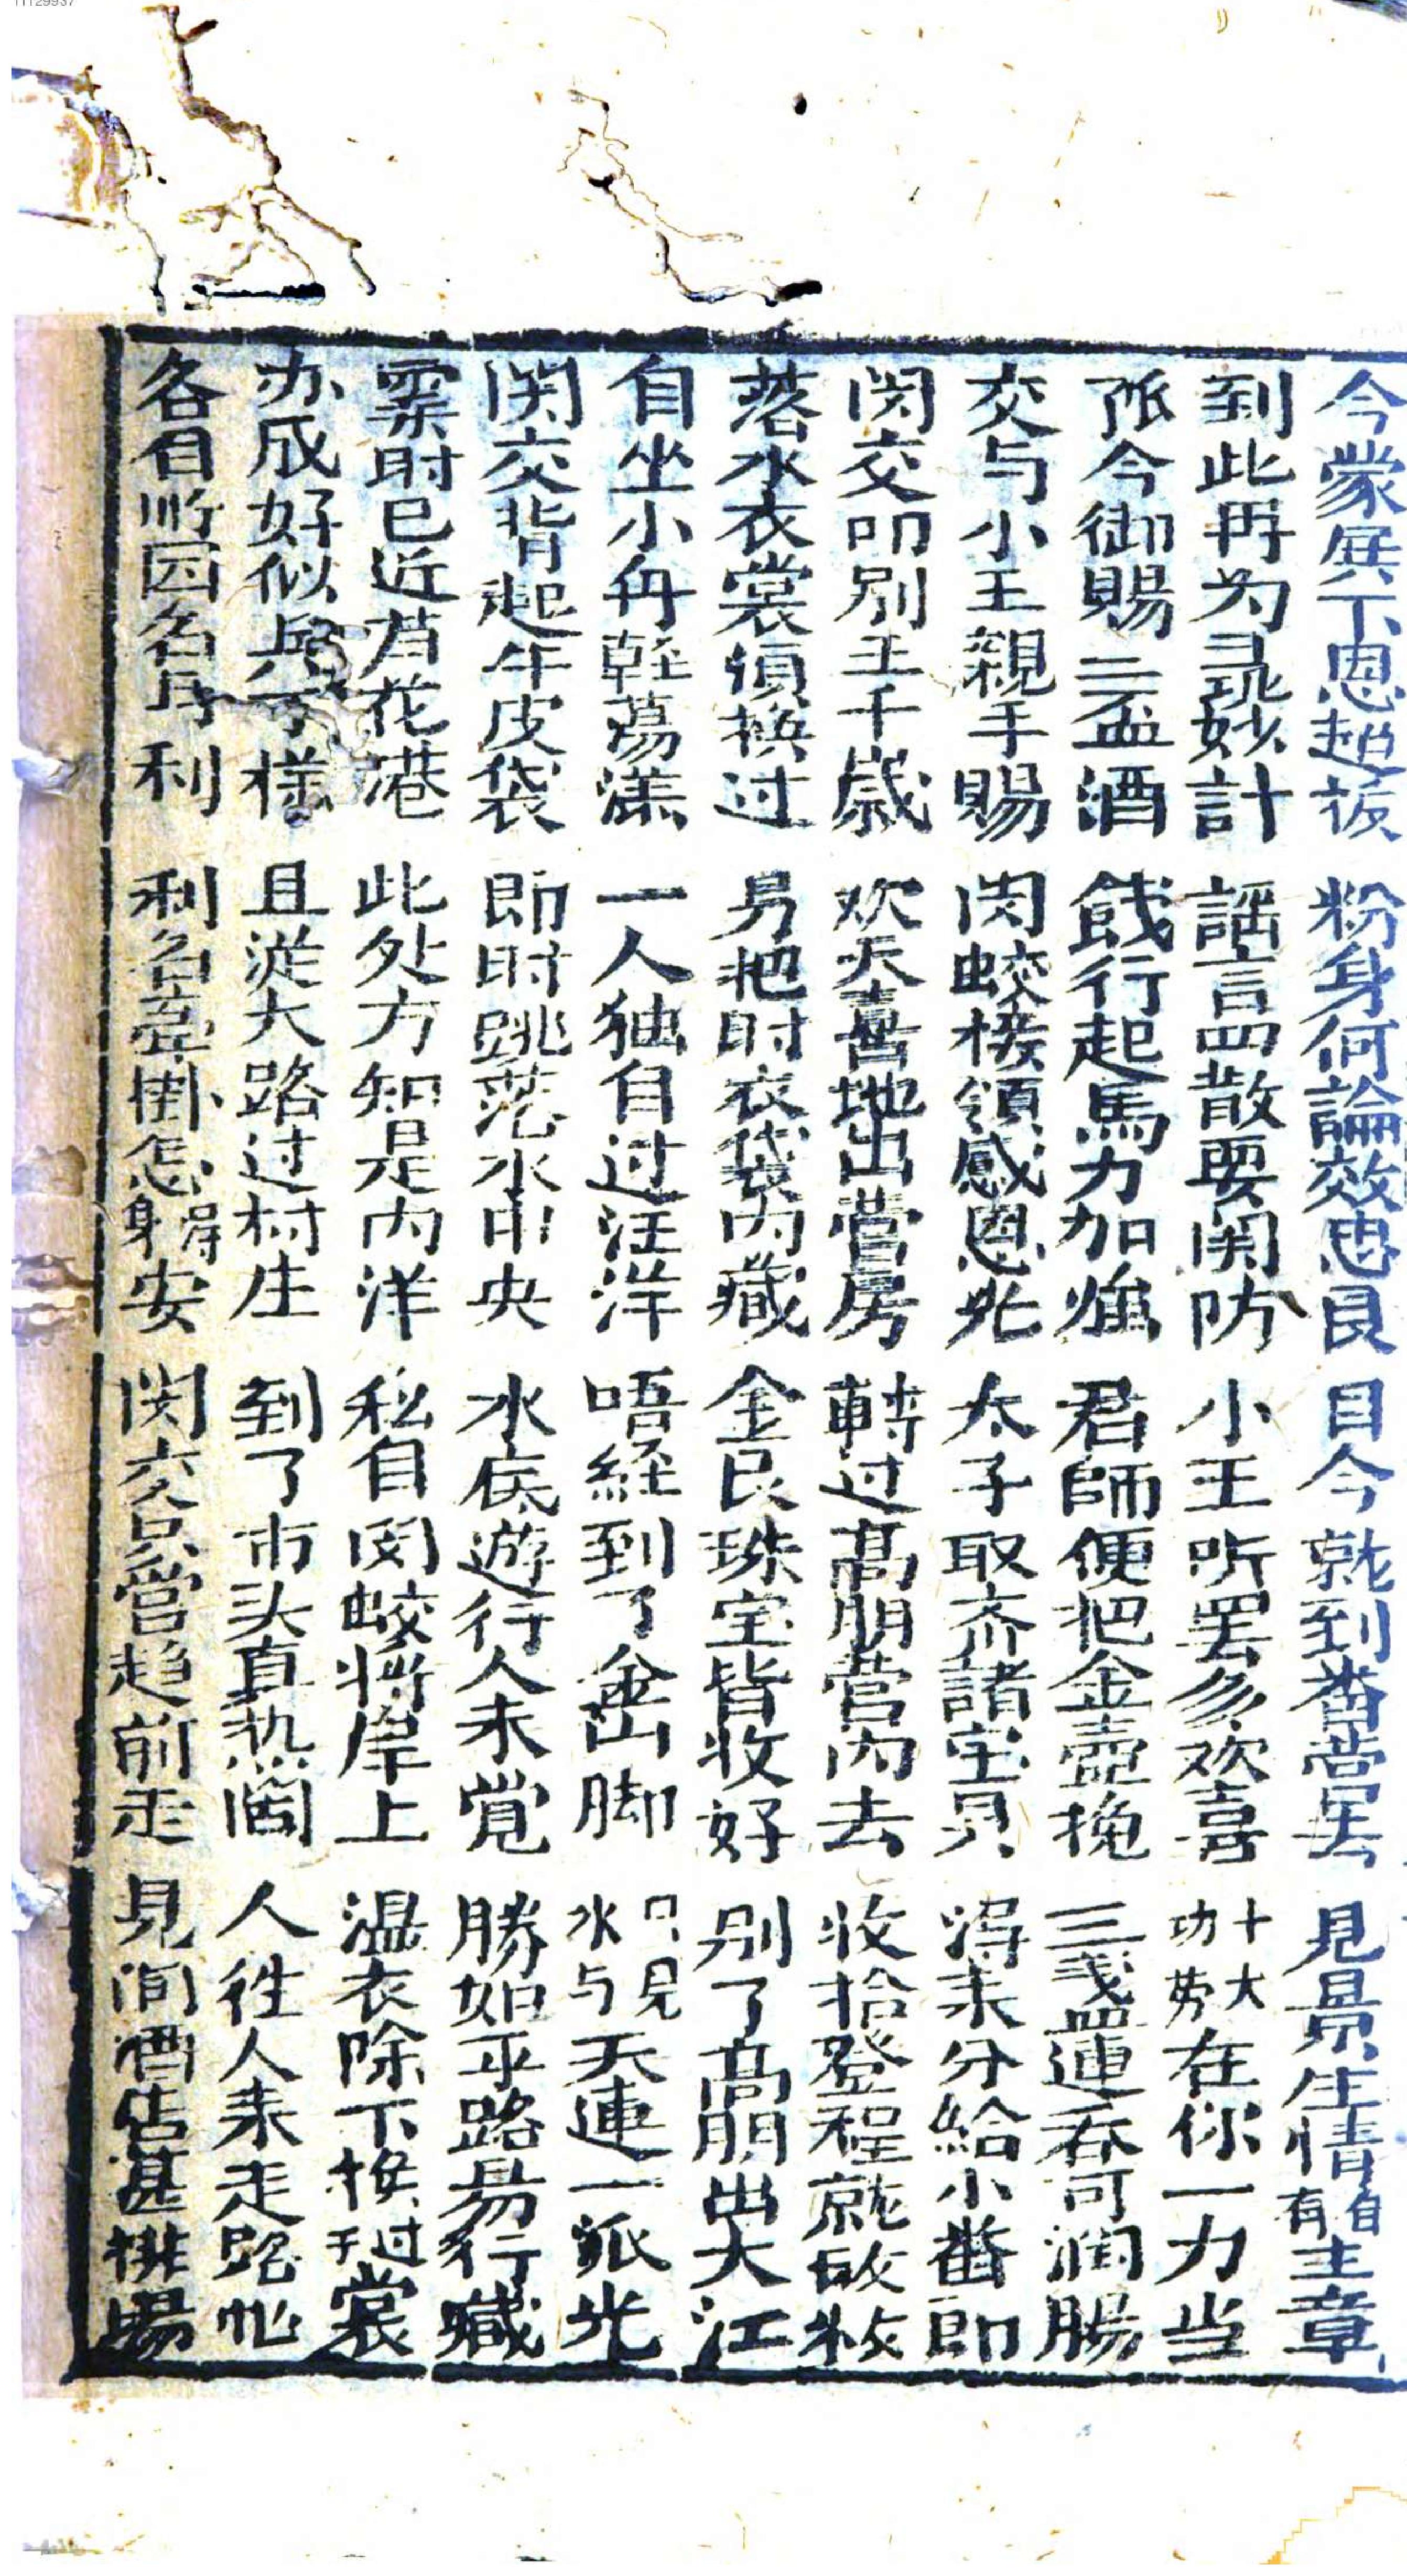 今蒙展下恩超扳 粉身何論效忠良 目今就到番营里 見景生情自有主章
到此再为寻妙計 謡言四散要関防 小王听罢多欢喜 十大功劳在你一力当
孤今御賜三盃酒 餞行起馬力加強 君師便把金壶挽 三盞連吞可润腸
交与小王親手賜 闵蛟接領感恩光 太子取齐諸宝貝 淂来分給小番郎
関交叩别王千歲 欢天喜地出营房 轉过高朋营内去 收拾登程就敢救
落水衣裳須换过 另把时衣袋内藏 金艮珠宝皆收好 别了高朋出大江
自坐小舟輕蕩漾 一人独自过汪洋 唔経到了 山脚 只見水与天連一派光
関交背起牛皮袋 即时跳落水中央 水底遊行人未覚 勝如平路易行藏
霎时已近芦花港 此处方知是内洋 私自闵蛟将岸上 温衣除下换过干裳
办成好似兵丁樣 且従大路过村庄 到了市头真热闹 人往人来走路忙
各自所因名与利 利名牵掛怎得身安 関交只当趋前走 見间酒店甚排場